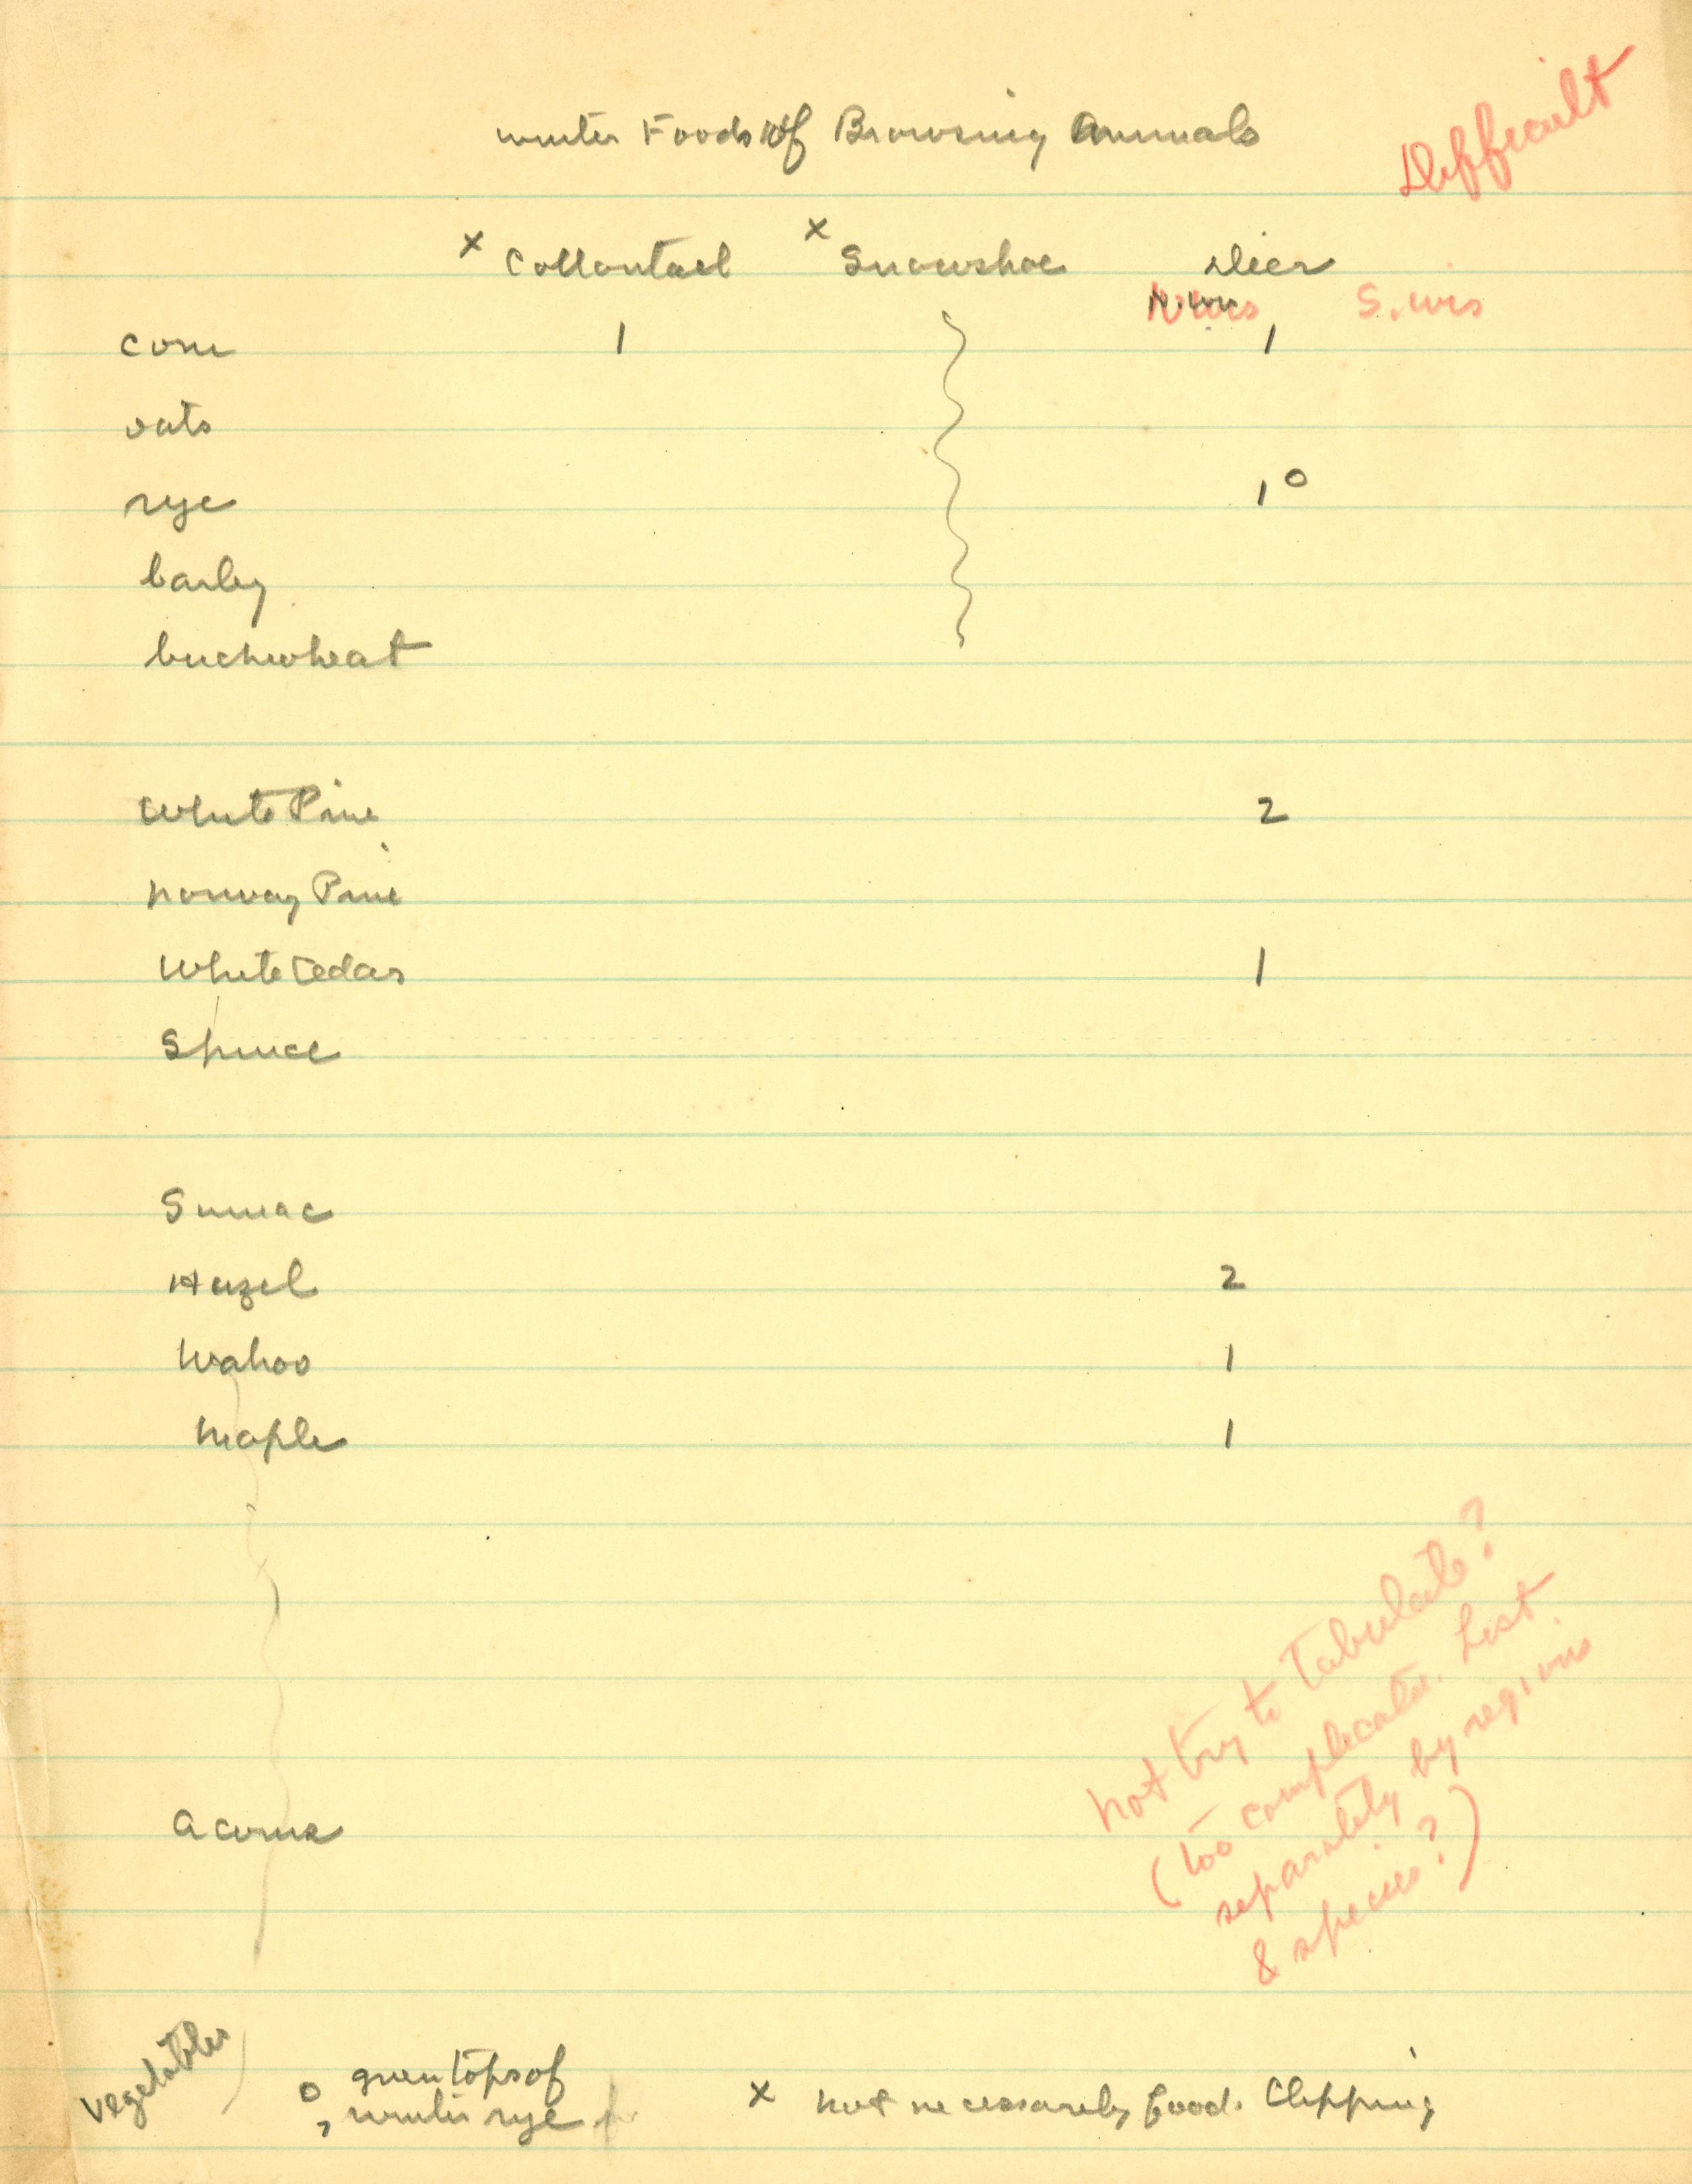 Winter Foods of Browsing Animals
Difficult
x Cottontail x Snowshoe Deer
N. Wis S. Wis
corn 1 1
oats
rye 1 o
barley
buckwheat
White Pine 2
Norway Pine
White Cedar 1
Spruce
Sumac
Hazel 2
Wahoo 1
Maple 1
Not try to tabulate?
(too complicate. List
separately by regions
& species?)
Acorns
vegetables
o green tops of
winter rye
x Not necessarily food. Clipping